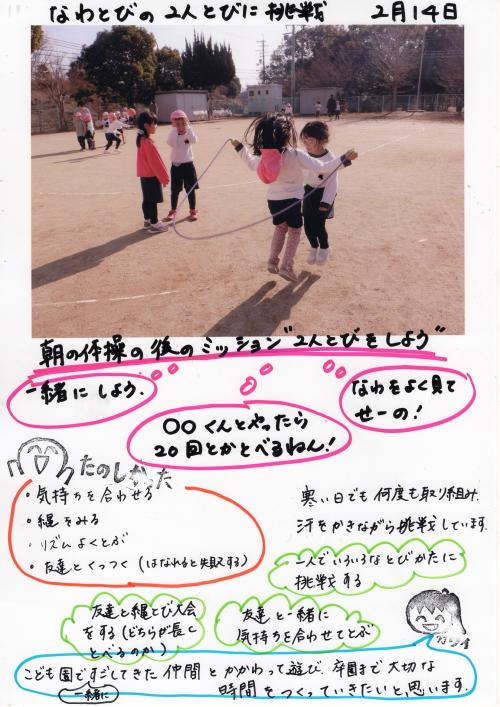 なわとびの2人とびに挑戦 2月14日
朝の体操の後のミッション"2人とびをしよう"
一緒にしよう.
○○くんとやったら
20回とかとべるねん!
なわをよく見て
せーの!
たのしかった
・気持ちを合わせる
・縄をみる
・リズムよくとぶ
・友達とくっつく(はなれると失敗する)
寒い日でも何度も取り組み.
汗をかきながら挑戦しています.
一人でいろいろなとびかたに
挑戦する
友達と縄とび大会
をする(どちらが長く
とべるのか)
友達と一緒に
気持ちを合わせてとぶ
こども園ですごしてきた仲間とかかわって遊び、卒園まで大切な
一緒に
時間をつくっていきたいと思います.